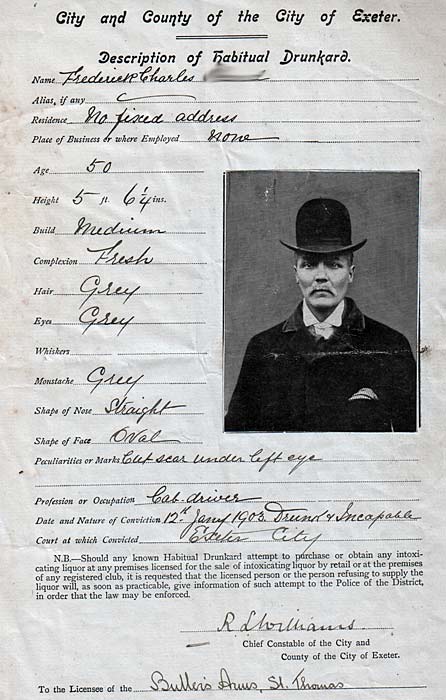 City and County of the City of Exeter.
Description of Habitual Drunkard.
Name Frederick Charles
Alias, if any
Residence No fixed address
Place of Business or where Employed none
Age 50
Height 5 ft. 6¼ ins.
Build Medium
Complexion Fresh
Hair Grey
Eyes Grey
Whiskers
Moustache Grey
Shape of Nose Straight
Shape of Face Oval
Peculiarities or Marks Cut scar under left eye
Profession or Occupation Cab-driver
Date and Nature of Conviction 12th Jany 1903. Drunk & Incapable
Court at which Convicted Exeter City
N.B.—Should any known Habitual Drunkard attempt to purchase or obtain any intoxi-
cating liquor at any premises licensed for the sale of intoxicating liquor by retail or at the premises
of any registered club, it is requested that the licensed person or the person refusing to supply the
liquor will, as soon as practicable, give information of such attempt to the Police of the District,
in order that the law may be enforced.
Williams
Chief Constable of the City and
County of the City of Exeter.
To the Licensee of the Buller's Arms, St. Thomas